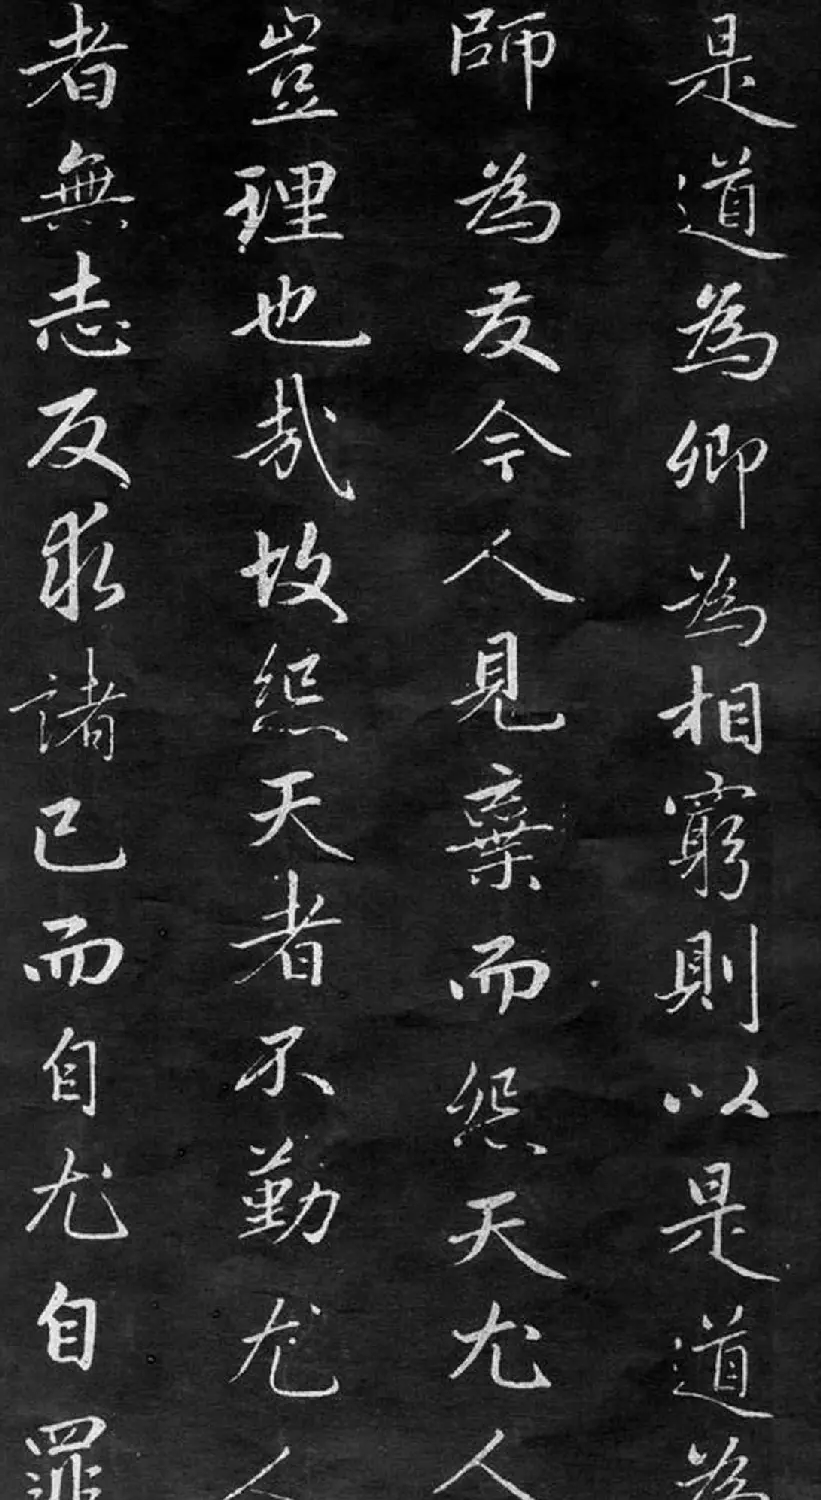 是道為卿為相窮則以是道為
師為友今人見棄而怨天尤人
豈理也哉故怨天者不勤尤人
者無志反求諸己而自尤自罪